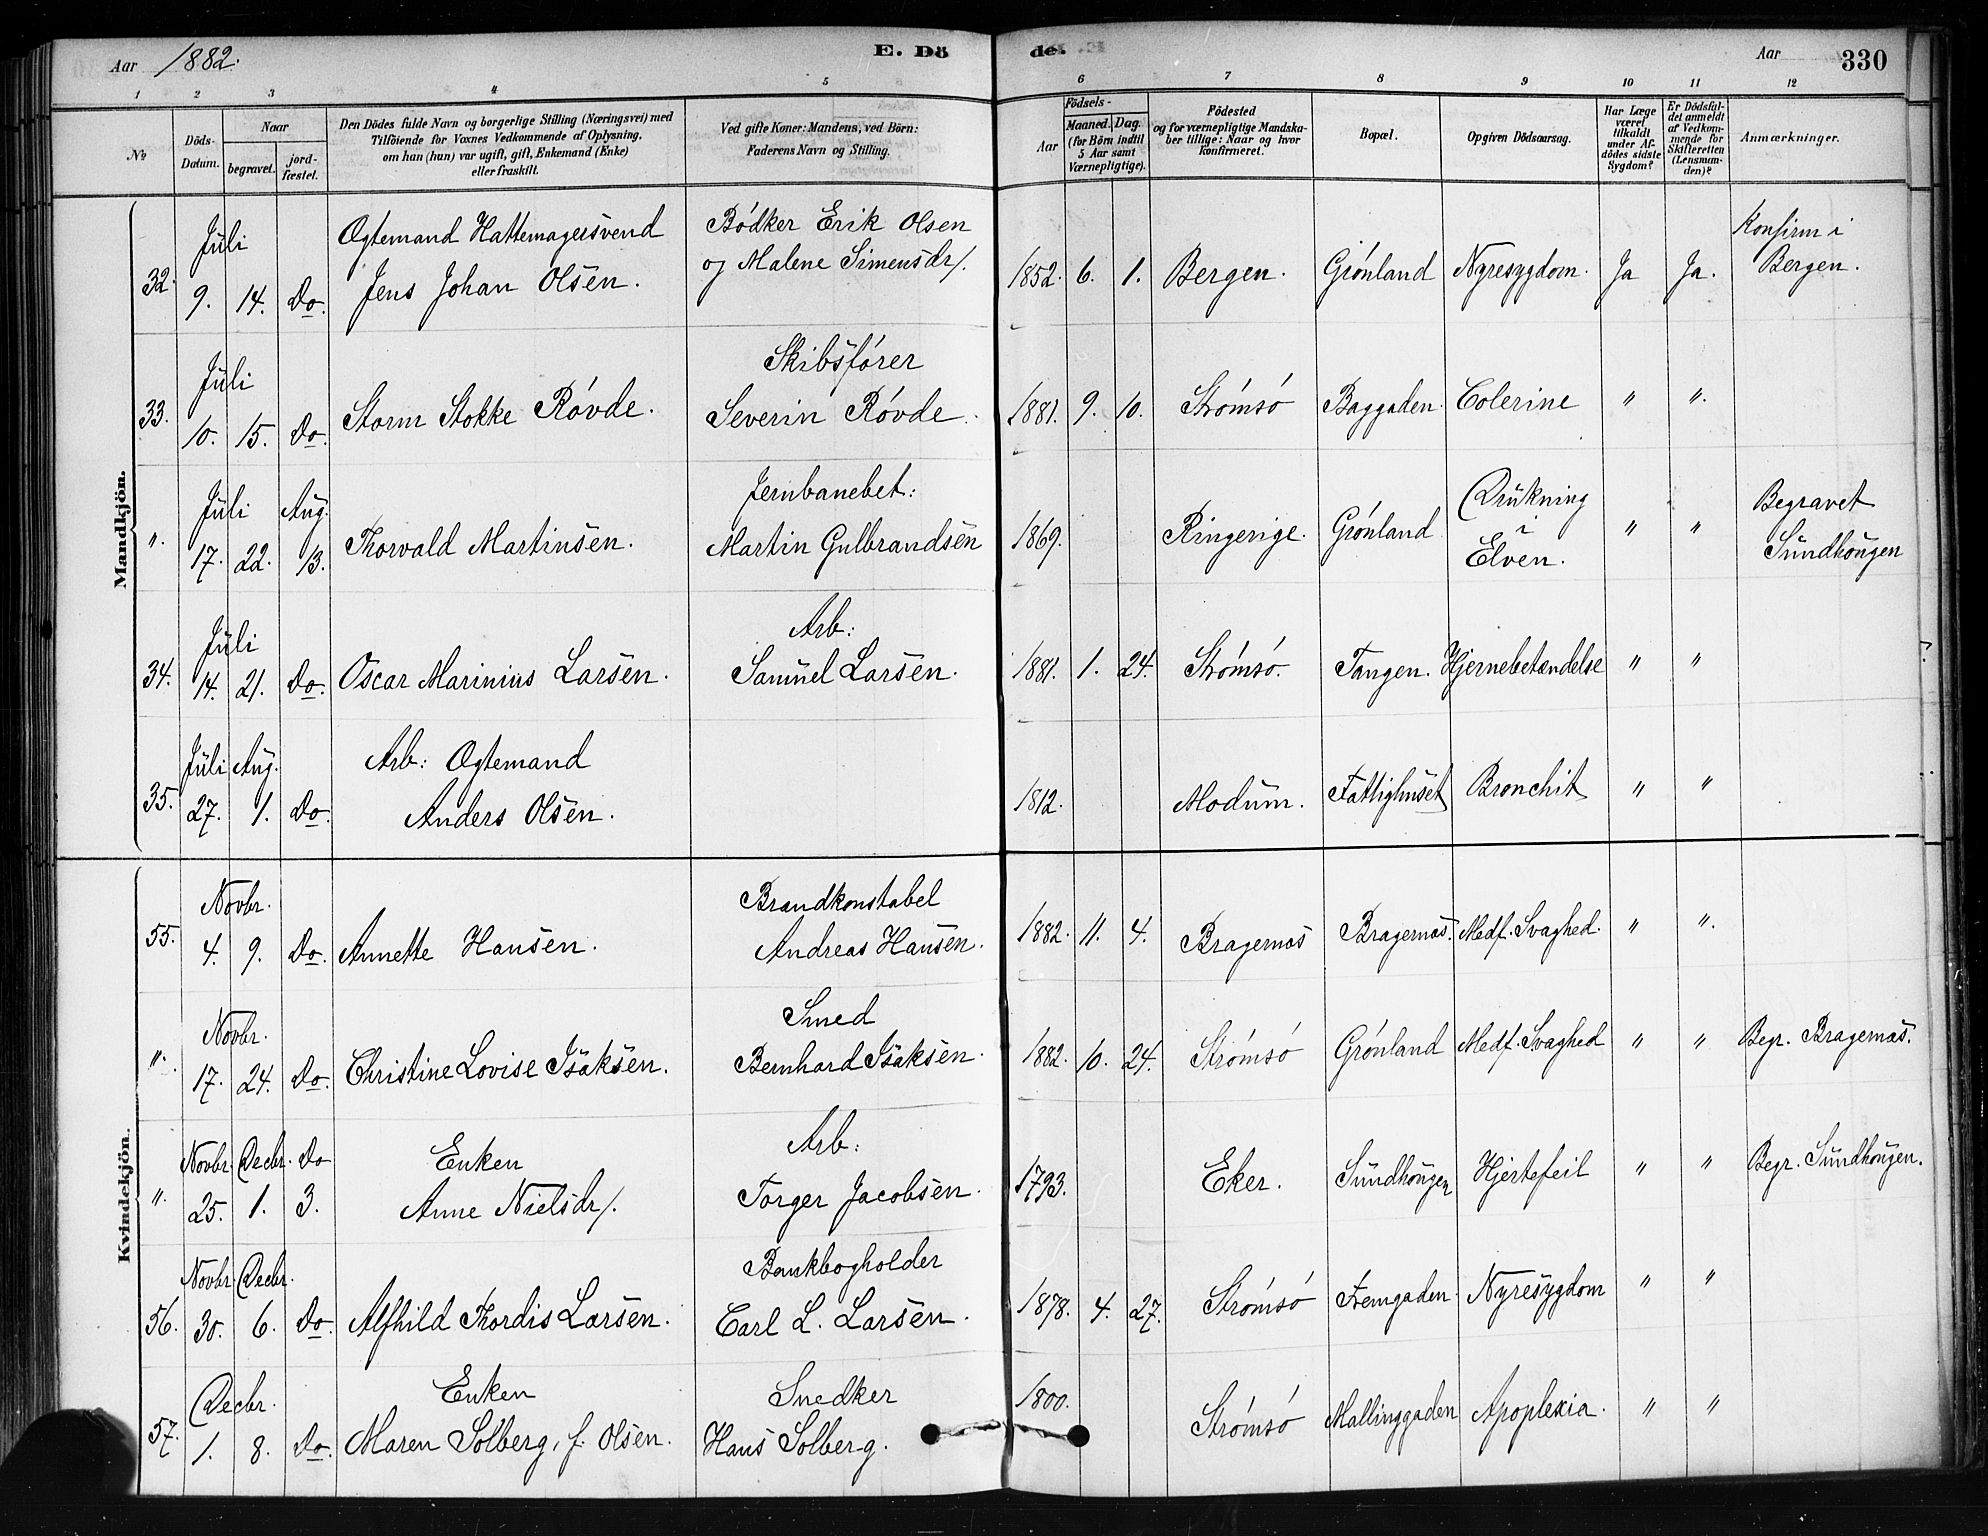 Aar 1882. E. Dö de. Aar 330
1 2 3 4 5 6 7 8 9 10 11 12
No
Döds-Datum.
Naar
begravet.
jord-fæstet.
Den Dödes fulde Navn og borgerlige Stilling (Næringsvei) med
Tilföiende for Voxnes Vedkommende af Oplysning,
om han (hun) var ugift, gift, Enkemand (Enke)
eller fraskilt.
Ved gifte Koner: Mandens, ved Börn:
Faderens Navn og Stilling.
Födsels-
Aar
Maaned. Dag.
(for Börn indtil
5 Aar samt
Værnepligtige).
Födested
og for værnepligtige Mandska-
ber tillige: Naar og hvor
konfirmeret.
Bopæl.
Opgiven Dödsaarsag.
Har Læge
været
tilkaldt
under Af-
dödes sidste
Sygdom?
Er Dödsfal-
det anmeldt
af Vedkom-
mende for
Skifteretten
(Lensman-
den)?
Anmærkninger.
Mandkjön.
Juli Ægtemand Hattemagersvend Bødker Erik Olsen Konfirm i
32. 9. 14. Do. Jens Johan Olsen. og Malene Simensdr/. 1852. 6. 1. Bergen. Grønland Nyresygdom. Ja Ja. Bergen.
Juli Skibsfører
33. 10. 15. Do. Storm Stokke Røvde. Severin Røvde. 1881. 9. 10. Strømsø Baggaden. Colerine " ".
Juli Aug. Jernbanebet: Drukning Begravet
". 17. 22. 13. Thorvald Martinsen. Martin Gulbrandsen 1869. Ringerige. Grønland i " " Sundhougen
Elven.
Juli Arb:
34. 14. 21. Do. Oscar Marinius Larsen. Samuel Larsen. 1881. 1. 24. Strømsø. Tangen. Hjernebetændelse " "
Juli Aug. Arb: Ægtemand
35. 27. 1. Do. Anders Olsen. 1812. Modum. Fattighuset Bronchit " "
Kvindekjön.
Novbr. Brandkonstabel
55. 4. 9. Do. Annette Hansen. Andreas Hansen. 1882. 11. 4. Bragernæs Bragernæs. Medf. Svaghed. " ".
Novbr. Smed
". 17. 24. Do. Christine Lovise Isaksen. Bernhard Isaksen. 1882. 10. 24. Strømsø Grønland Medf. Svaghed " " Begr. Bragernæs.
Novbr. Decbr. Do Enken Arb:
". 25. 1. 3. Anne Nielsdr/. Torger Jacobsen. 1793. Eker. Sundhougen Hjertefeil " " Begr. Sundhougen.
Novbr. Decbr. Bankbogholder
56. 30. 6. Do. Alfhild Thordis Larsen. Carl L. Larsen. 1878. 4. 27. Strømsø Fremgaden. Nyresygdom " "
Decbr. Enken Snedker
57. 1. 8. Do. Maren Solberg, f. Olsen. Hans Solberg. 1800. Strømsø Mallinggaden Apoplexia. " "